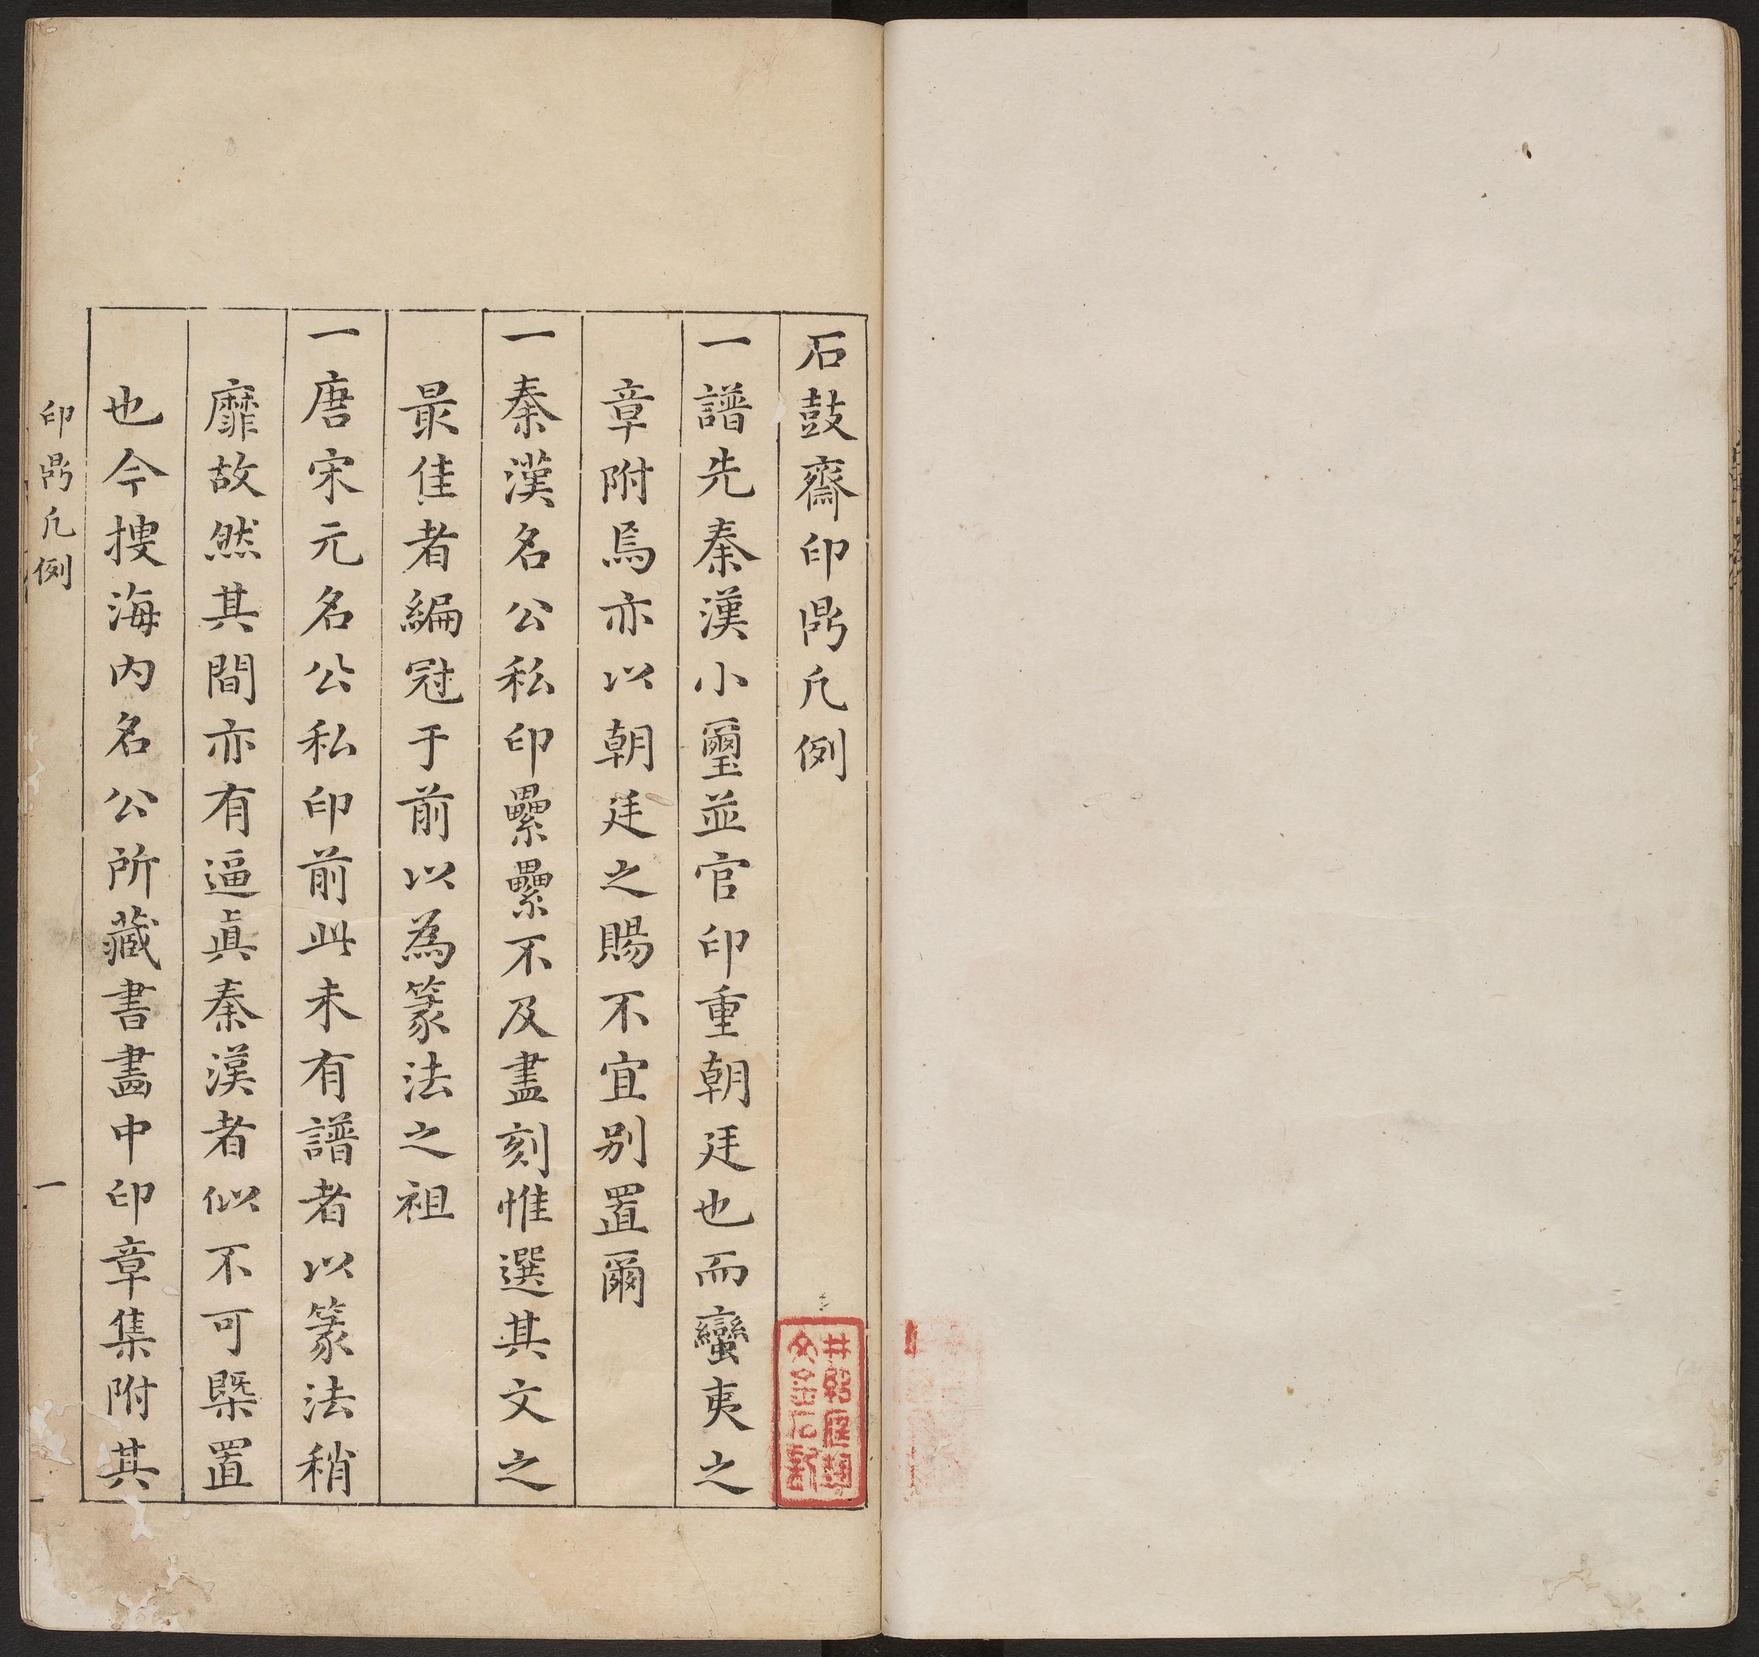 石鼓齋印鼎凡例
一譜先秦漢小璽並官印重朝廷也而蠻夷之
章附焉亦以朝廷之賜不宜别置爾
一秦漢名公私印纍纍不及盡刻惟選其文之
最佳者編冠于前以為篆法之祖
一唐宋元名公私印前此未有譜者以篆法稍
靡故然其間亦有逼眞秦漢者似不可槩置
也今搜海内名公所藏書畵中印章集附其
印鼎凡例
一